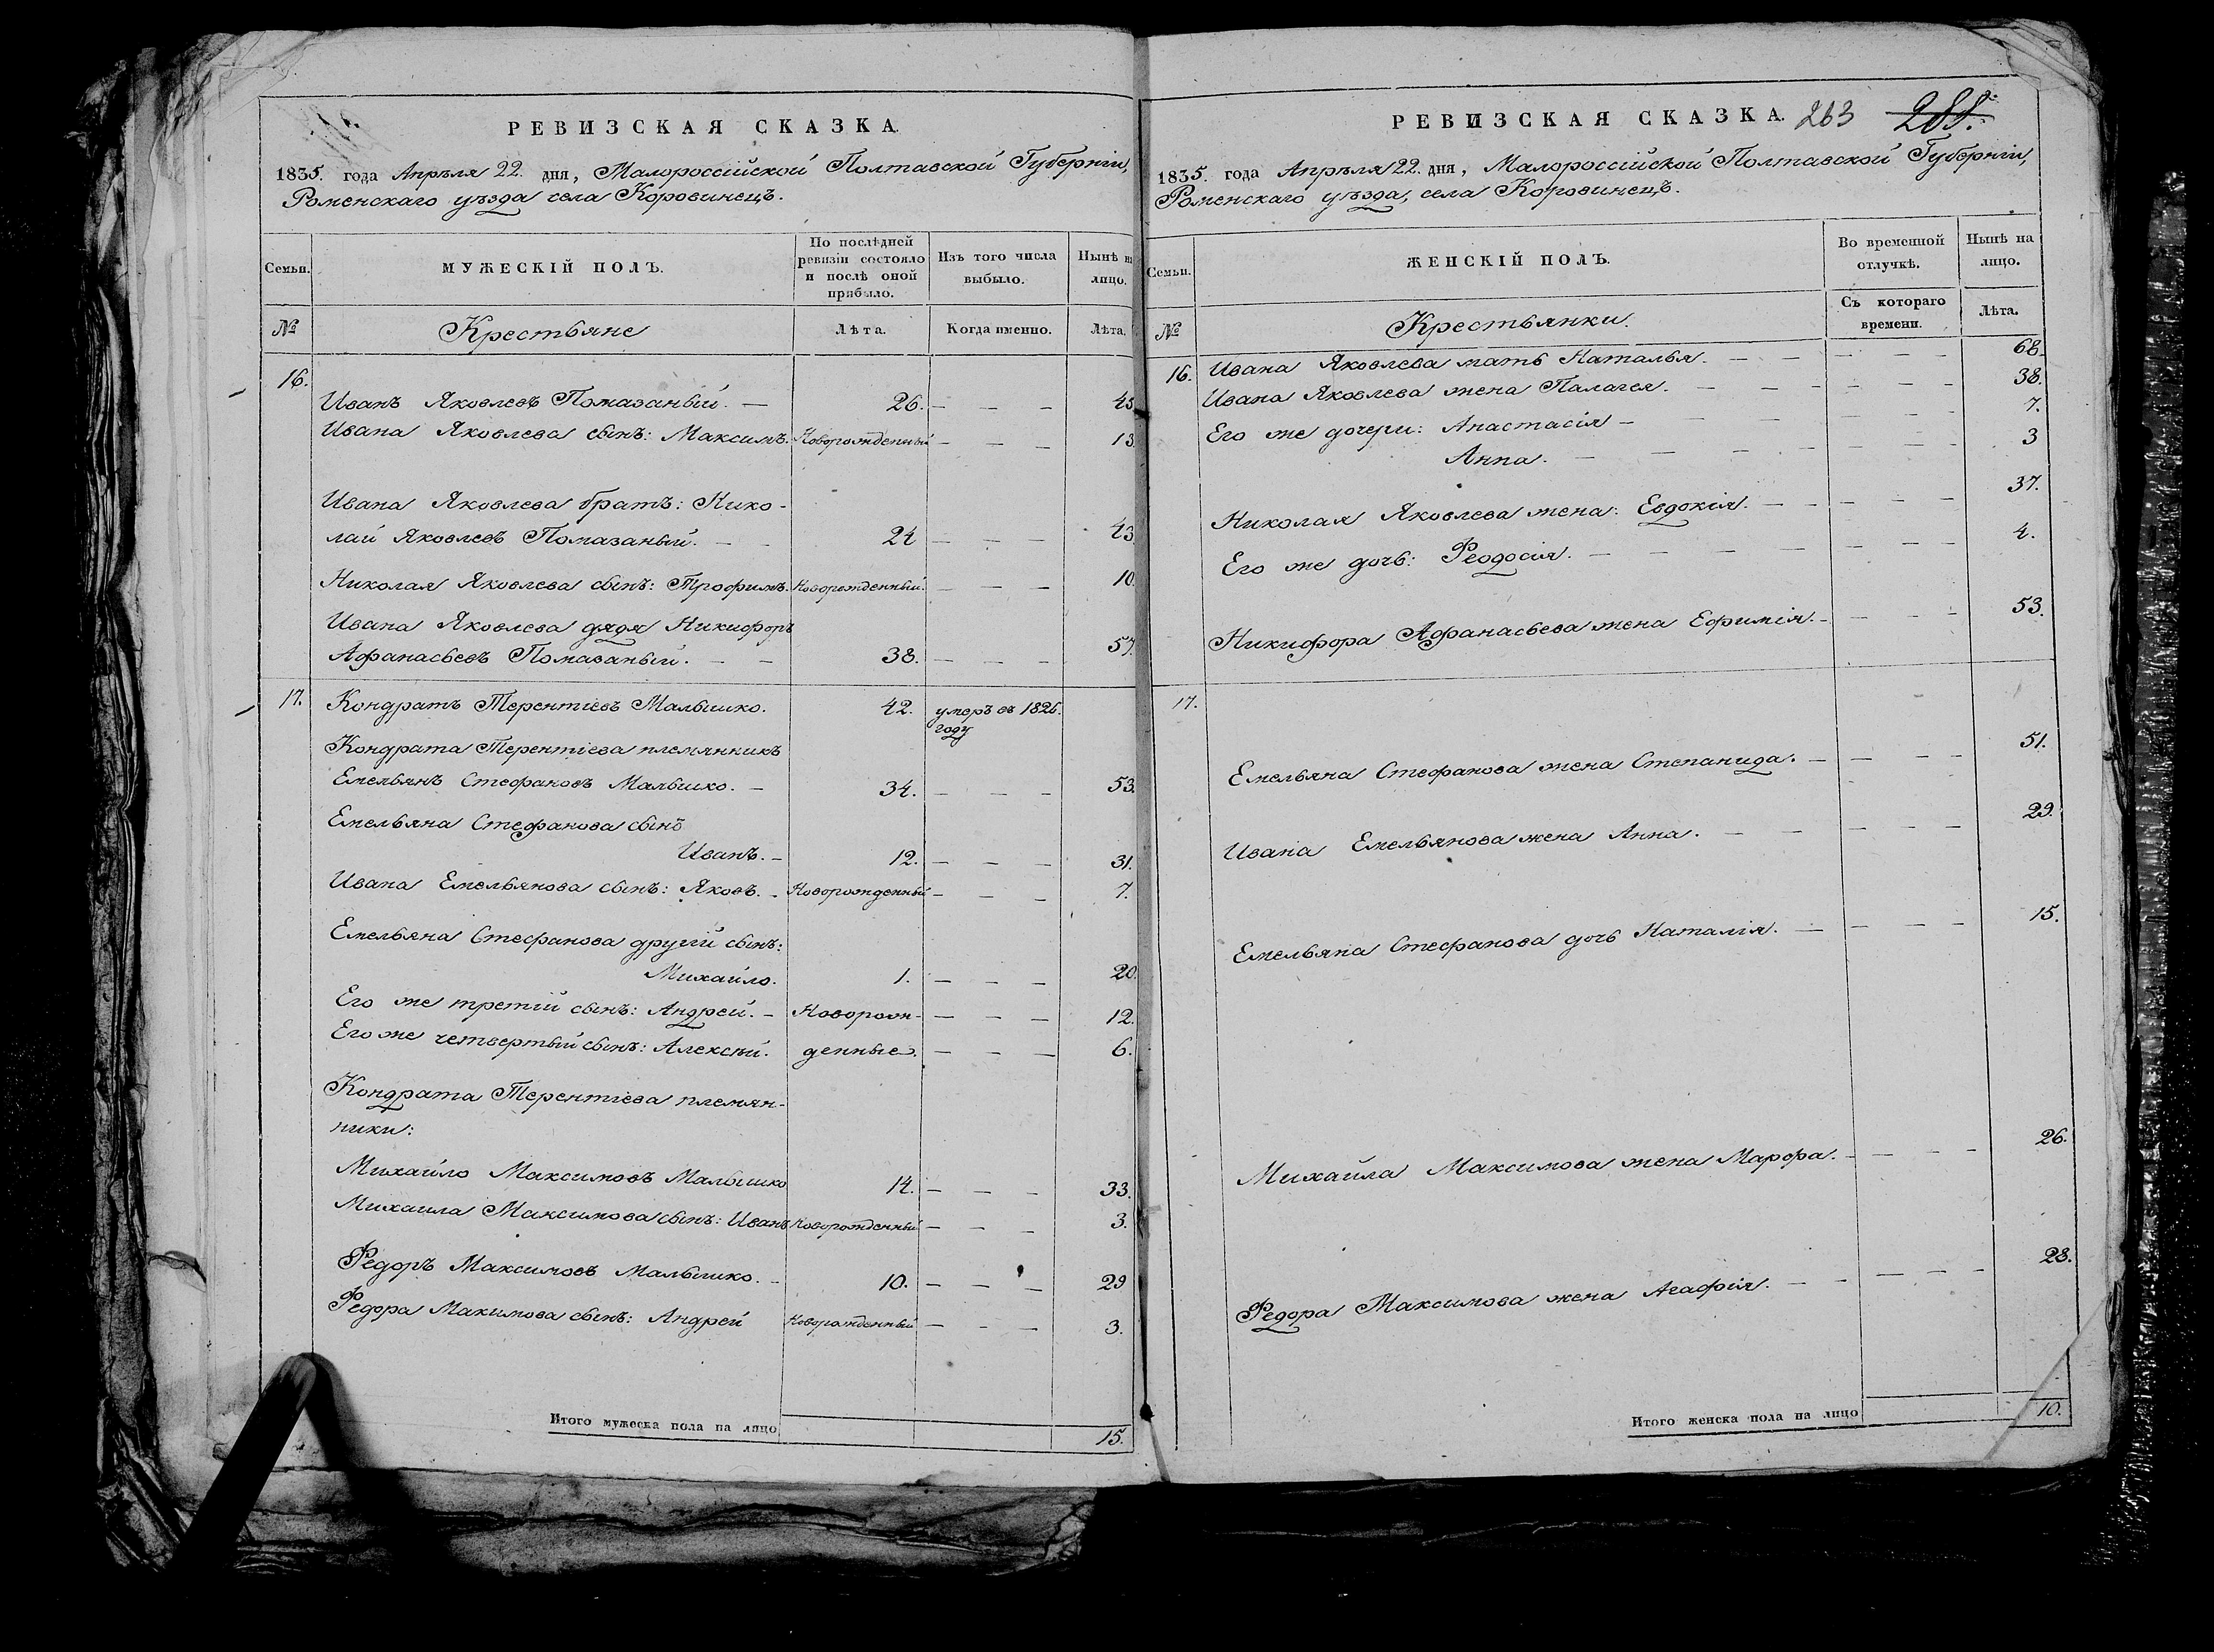 РЕВИЗСКАЯ СКАЗКА.
1835. года Апрѣля 22. дня, Малороссійской Полтавской Губерніи,
Роменскаго уѣзда села Коровинецъ.
Семьи.
МУЖЕСКІЙ ПОЛЪ.
По послѣдней ревизіи состояло и послѣ оной прибыло.
Изъ того числа выбыло.
Нынѣ на лицо.
№
Крестьяне
Лѣта.
Когда именно.
Лѣта.
16.
Иванъ Яковлевъ Помазаный. — 26. — — — 45
Ивана Яковлева сынъ: Максимъ. Новорожденный — — — 13
Ивана Яковлева братъ: Нико-
лай Яковлевъ Помазаный. — — 24 — — — 43
Николая Яковлева сынъ: Трофимъ. Новорожденный. — — — 10.
Ивана Яковлева дядя Никифоръ
Афанасьевъ Помазаный. — — 38. — — — 57.
17. Кондратъ Терентіевъ Малышко. 42. умеръ въ 1826.
году
Кондрата Терентіева племянникъ
Емельянъ Стефановъ Малышко. — 34. — — — 53.
Емельяна Стефанова сынъ
Иванъ. — 12. — — — 31.
Ивана Емельянова сынъ: Яковъ. — Новорожденный — — — 7.
Емельяна Стефанова другій сынъ:
Михайло. 1. — — — 20.
Его же третій сынъ: Андрей. — Новорож- — — — 12.
Его же четвертый сынъ: Алексѣй. денные. — — — 6.
Кондрата Терентіева племян-
ники:
Михайло Максимовъ Малышко 14. — — — 33.
Михаила Максимова сынъ: Иванъ Новорожденный — — — 3.
Федоръ Максимовъ Малышко. — 10. — — — 29
Федора Макимова сынъ: Андрей Новорожденный — — — 3.
Итого мужеска пола на лицо
15.
РЕВИЗСКАЯ СКАЗКА. 263
1835. года Апрѣля 22. дня, Малороссійской Полтавской Губерніи,
Роменскаго уѣзда, села Коровинецъ.
Семьи.
ЖЕНСКІЙ ПОЛЪ.
Во временной отлучкѣ.
Нынѣ на лицо.
№
Крестьянки.
Съ котораго времени.
Лѣта.
16. Ивана Яковлева мать Наталья. — — — — — 68.
Ивана Яковлева жена Палагея. — — — — — — 38.
Его же дочери: Анастасія — — — — — — — 7.
Анна. — — — — — — — 3
Николая Яковлева жена: Евдокія. — — — — — 37.
Его же дочь: Феодосія. — — — — — — — 4.
Никифора Афанасьева жена Ефимія. — — — — 53.
17.
Емельяна Стефанова жена Степанида. — — — — 51.
Ивана Емельянова жена Анна. — — — — — — 29.
Емельяна Стефанова дочь Наталія. — — — — 15.
Михайла Максимова жена Марфа. — — — — 26.
Федора Максимова жена Агафія. — — — — — 28.
Итого женска пола на лицо
10.